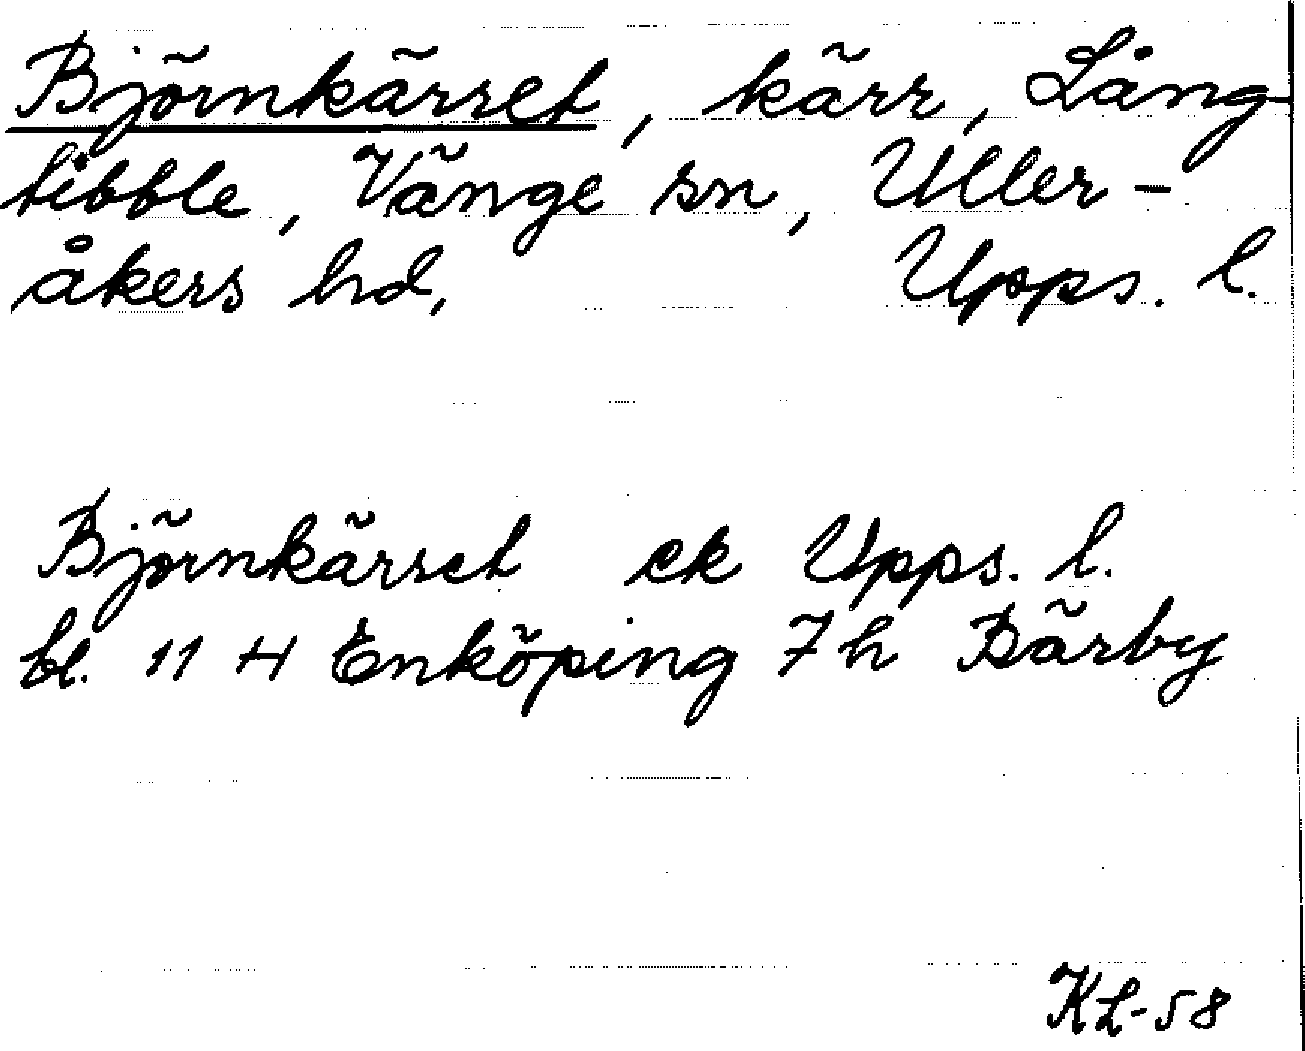 Björnkärret, kärr, Lång-
tibble, Vänge sn, Uller-
åkers hd, Upps. l.
Björnkärret ek Upps. l.
bl. 11 H Enköping 7h Bärby
KL-58